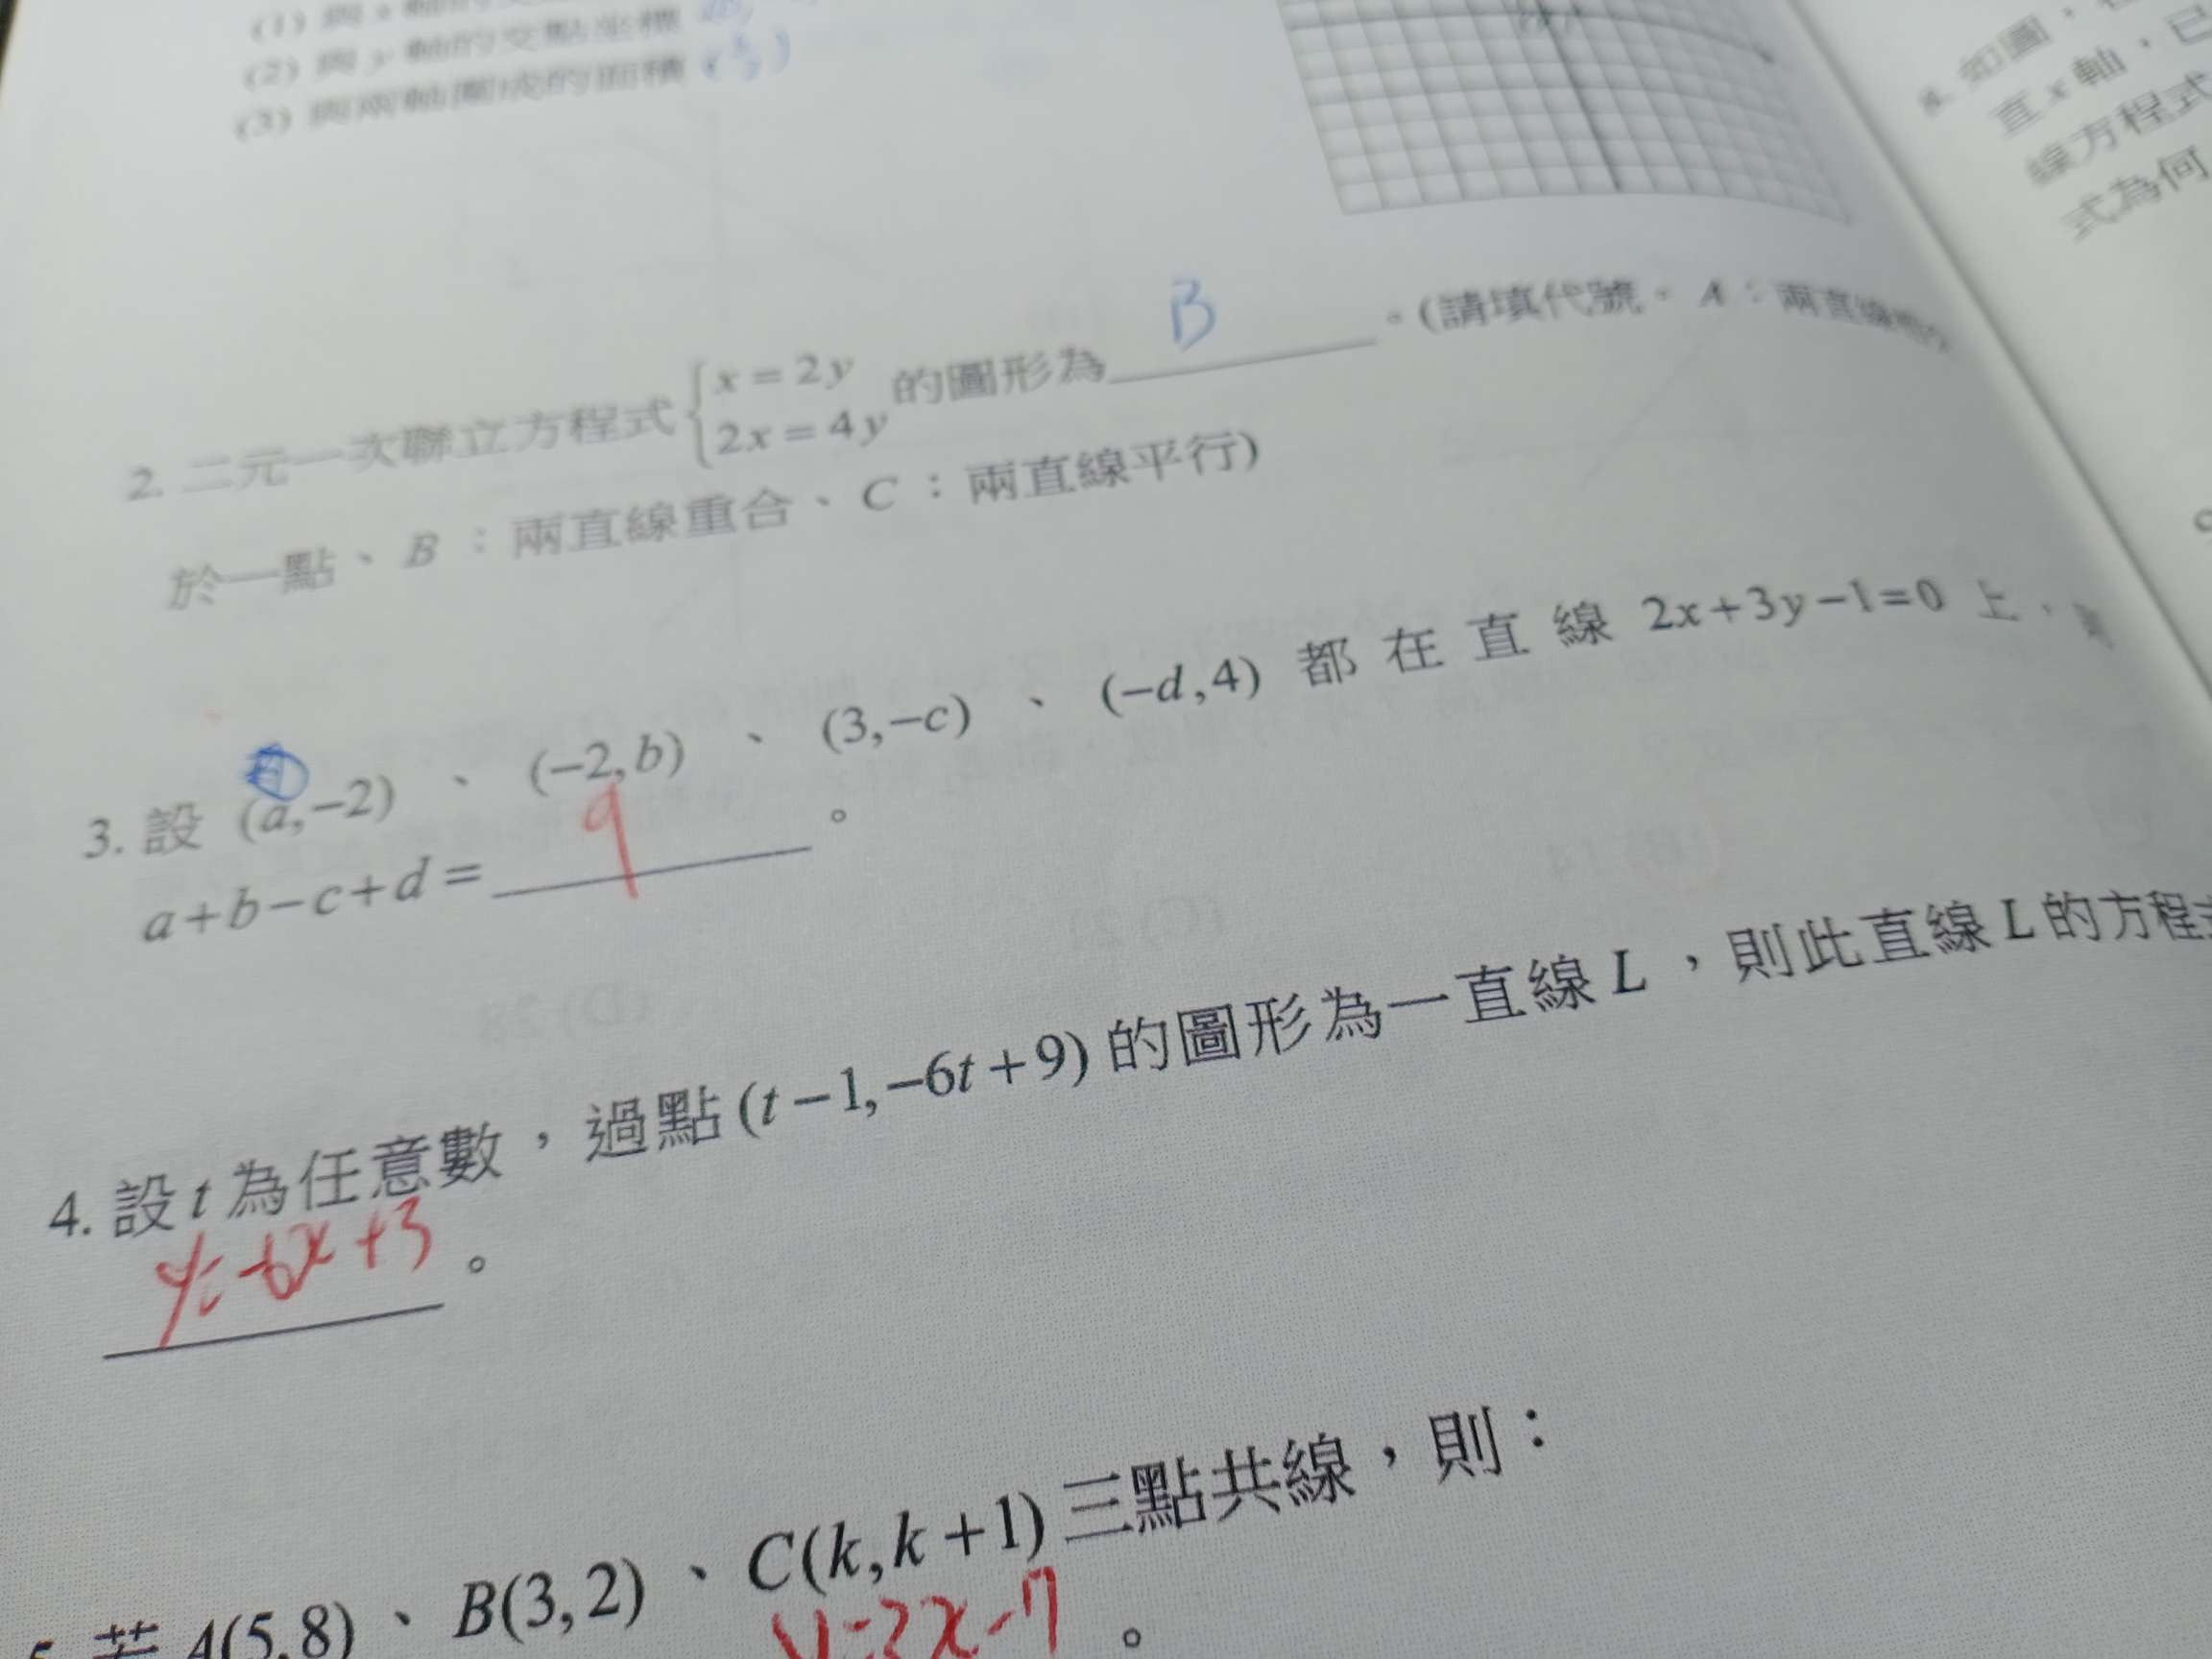 (2) 與 y 軸的交點坐標
(3) 與兩軸圍成的面積
8. 如圖,
直 x 軸,已
線方程式
式為何
2. 二元一次聯立方程式 { x = 2y 的圖形為 B 。(請填代號。A:兩直線
2x = 4y
於一點、B:兩直線重合、C:兩直線平行)
3. 設 (a,−2) 、 (−2,b) 、 (3,−c) 、 (−d,4) 都在直線 2x+3y−1=0 上,
a+b−c+d= 9 。
4. 設 t 為任意數,過點 (t−1,−6t+9) 的圖形為一直線 L ,則此直線 L 的方程
y=-6x+3 。
5. 若 A(5,8)、B(3,2)、C(k,k+1) 三點共線,則:
y=3x-7 。